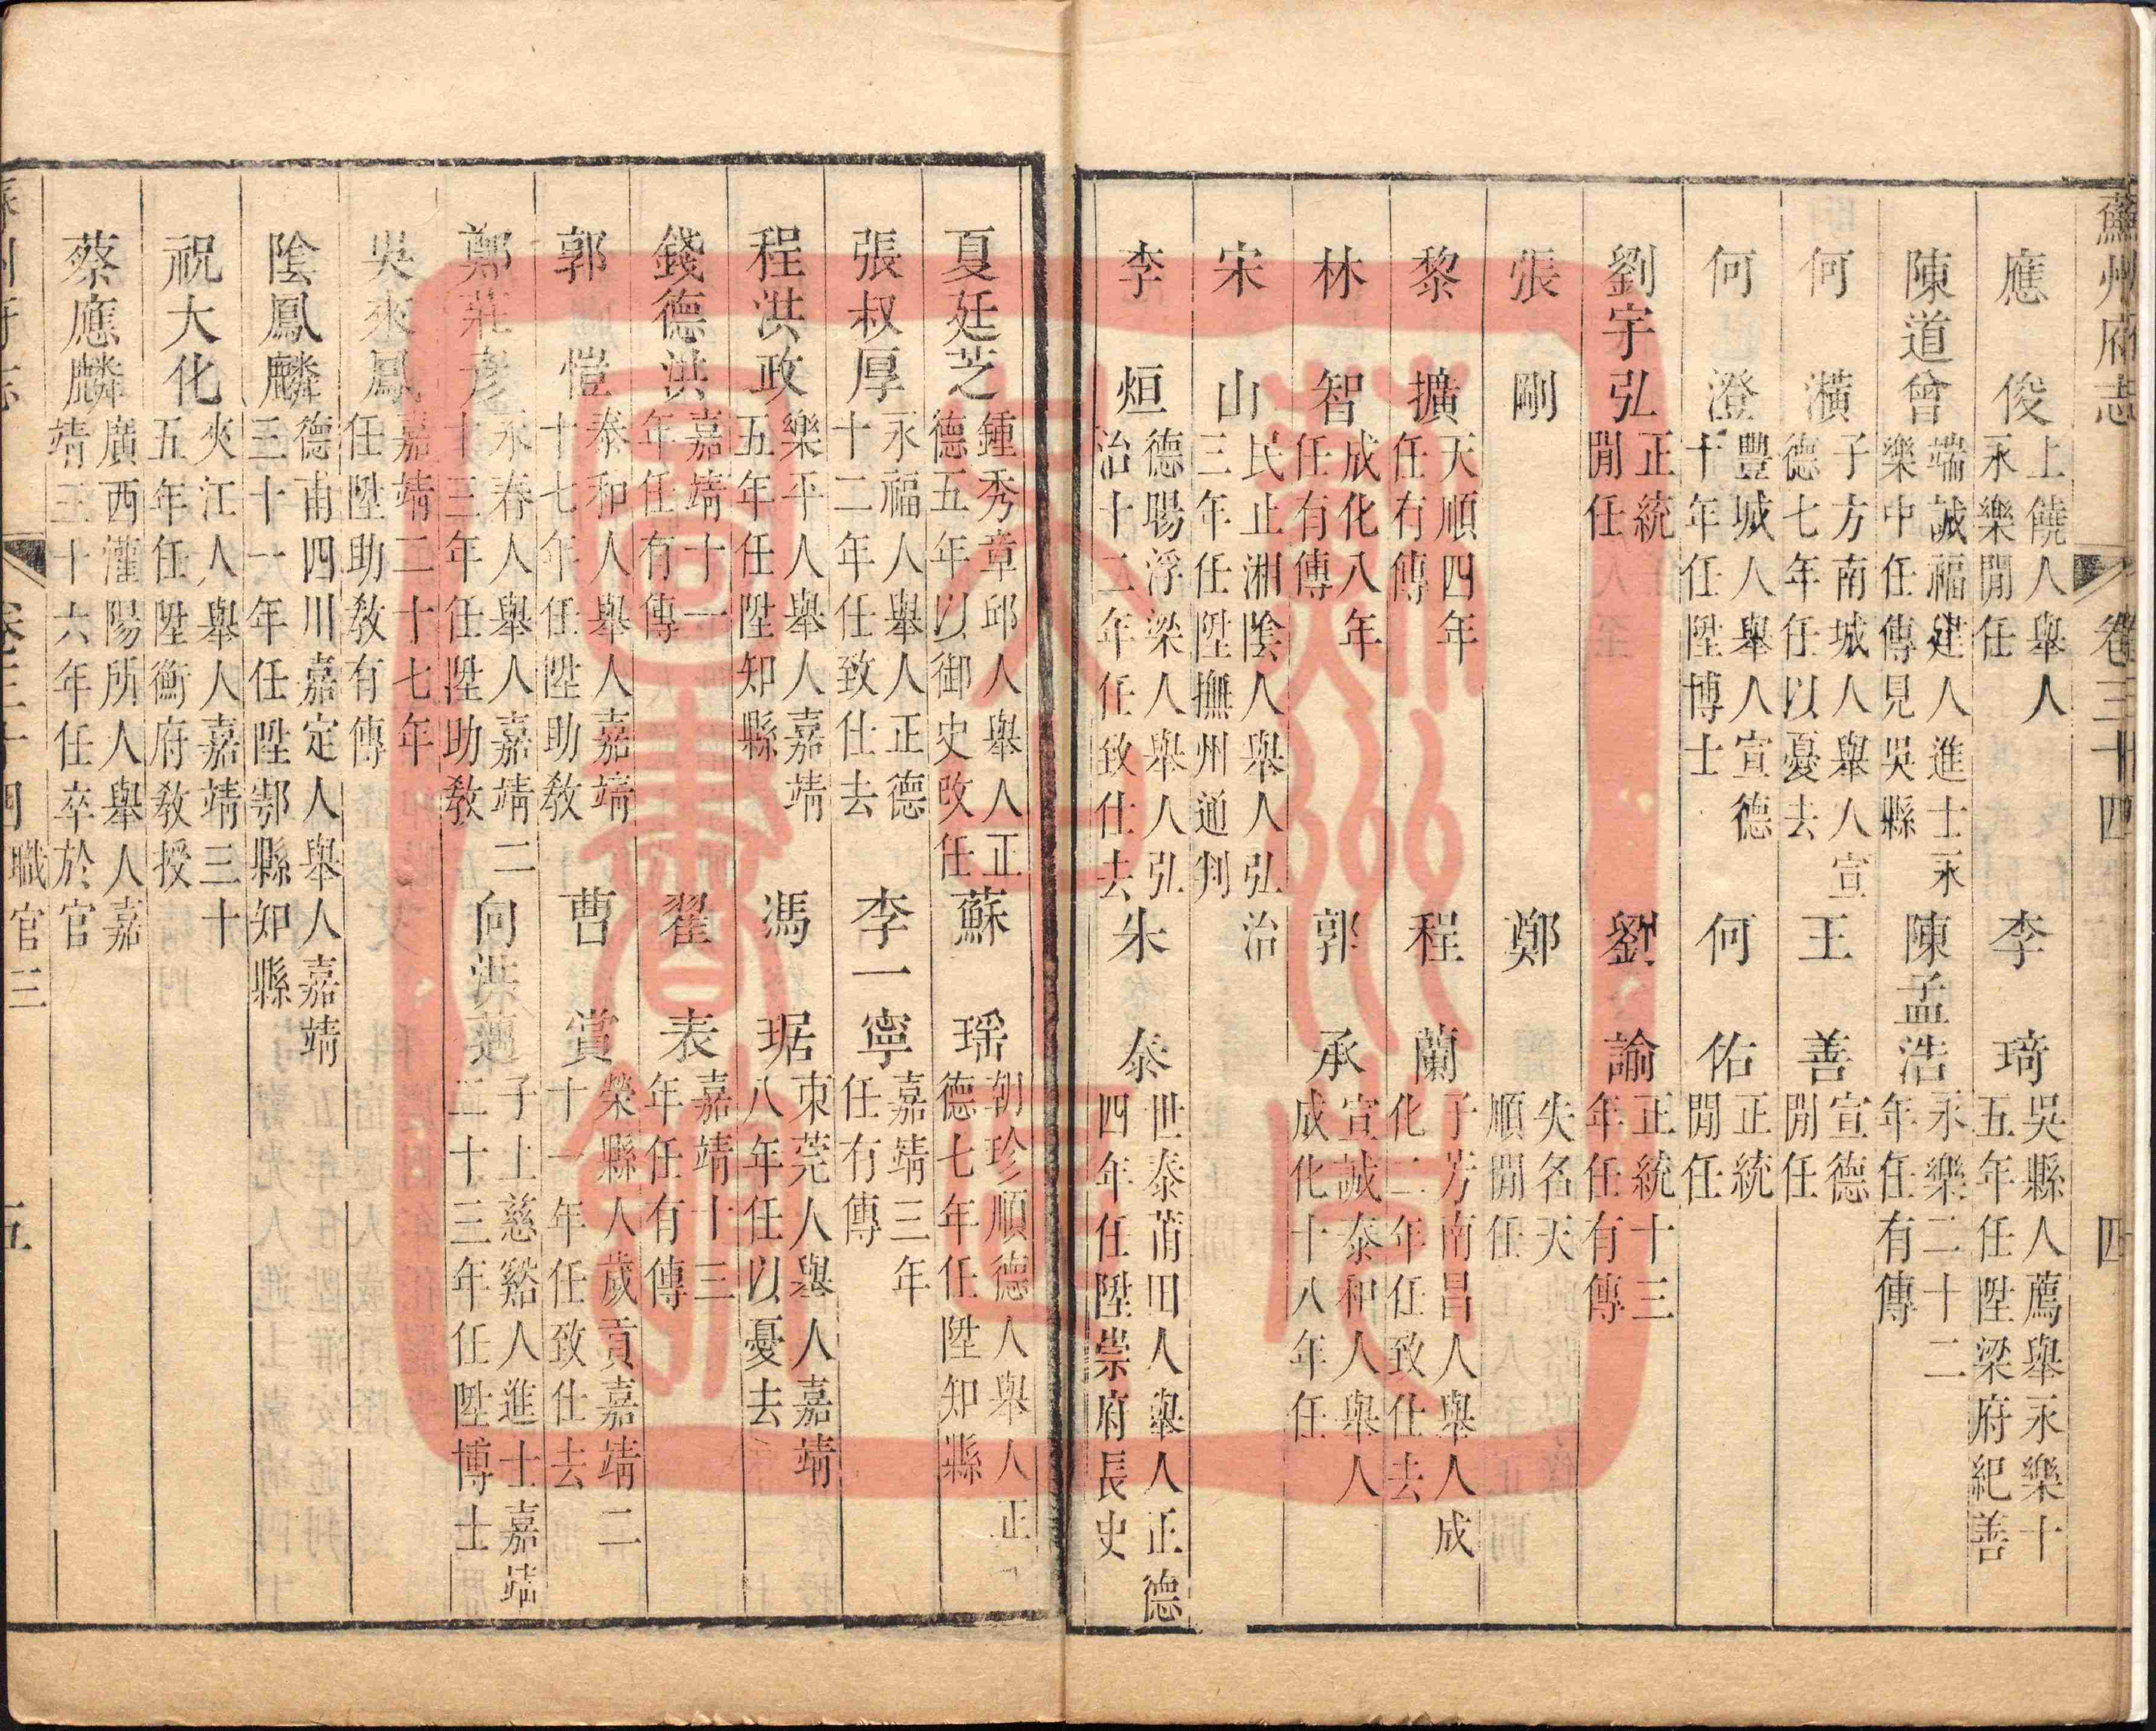 蘇州府志 卷三十四 四
應俊 上饒人舉人永樂閒任 李琦 吳縣人薦舉永樂十五年任陞梁府紀善
陳道曾 端誠福建人進士永樂中任傳見吳縣 陳孟浩 永樂二十二年任有傳
何潢 子方南城人舉人宣德七年任以憂去 王善 宣德閒任
何澄 豐城人舉人宣德十年任陞博士 何佑 正統閒任
劉宇弘 正統閒任 劉諭 正統十三年任有傳
張剛 鄭 失名天順閒任
黎擴 天順四年任有傳 程蘭 子芳南昌人舉人成化二年任致仕去
林智 成化八年任有傳 郭承 宣誠泰和人舉人成化十八年任
宋山 民止湘陰人舉人弘治三年任陞撫州通判
李烜 德暘浮梁人舉人弘治十二年任致仕去 朱泰 世泰莆田人舉人正德四年任陞崇府長史
夏廷芝 鍾秀章邱人舉人正德五年以御史改任 蘇瑶 朝珍順德人舉人正德七年任陞知縣
張叔厚 永福人舉人正德十二年任致仕去 李一寧 嘉靖三年任有傳
程洪政 樂平人舉人嘉靖五年任陞知縣 馮琚 東莞人舉人嘉靖八年任以憂去
錢德洪 嘉靖十一年任有傳 翟表 嘉靖十三年任有傳
郭愷 泰和人舉人嘉靖十七年任陞助教 曹賞 榮縣人歲貢嘉靖二十一年任致仕去
鄭莊彥 永春人舉人嘉靖二十三年任陞助教 向洪邁 子上慈谿人進士嘉靖二十三年任陞博士
吳來鳳 嘉靖二十七年任陞助教有傳
陰鳳麟 德甫四川嘉定人舉人嘉靖三十一年任陞鄠縣知縣
祝大化 夾江人舉人嘉靖三十五年任陞衡府教授
蔡應麟 廣西灌陽所人舉人嘉靖三十六年任卒於官
蘇州府志 卷三十四 職官三 五